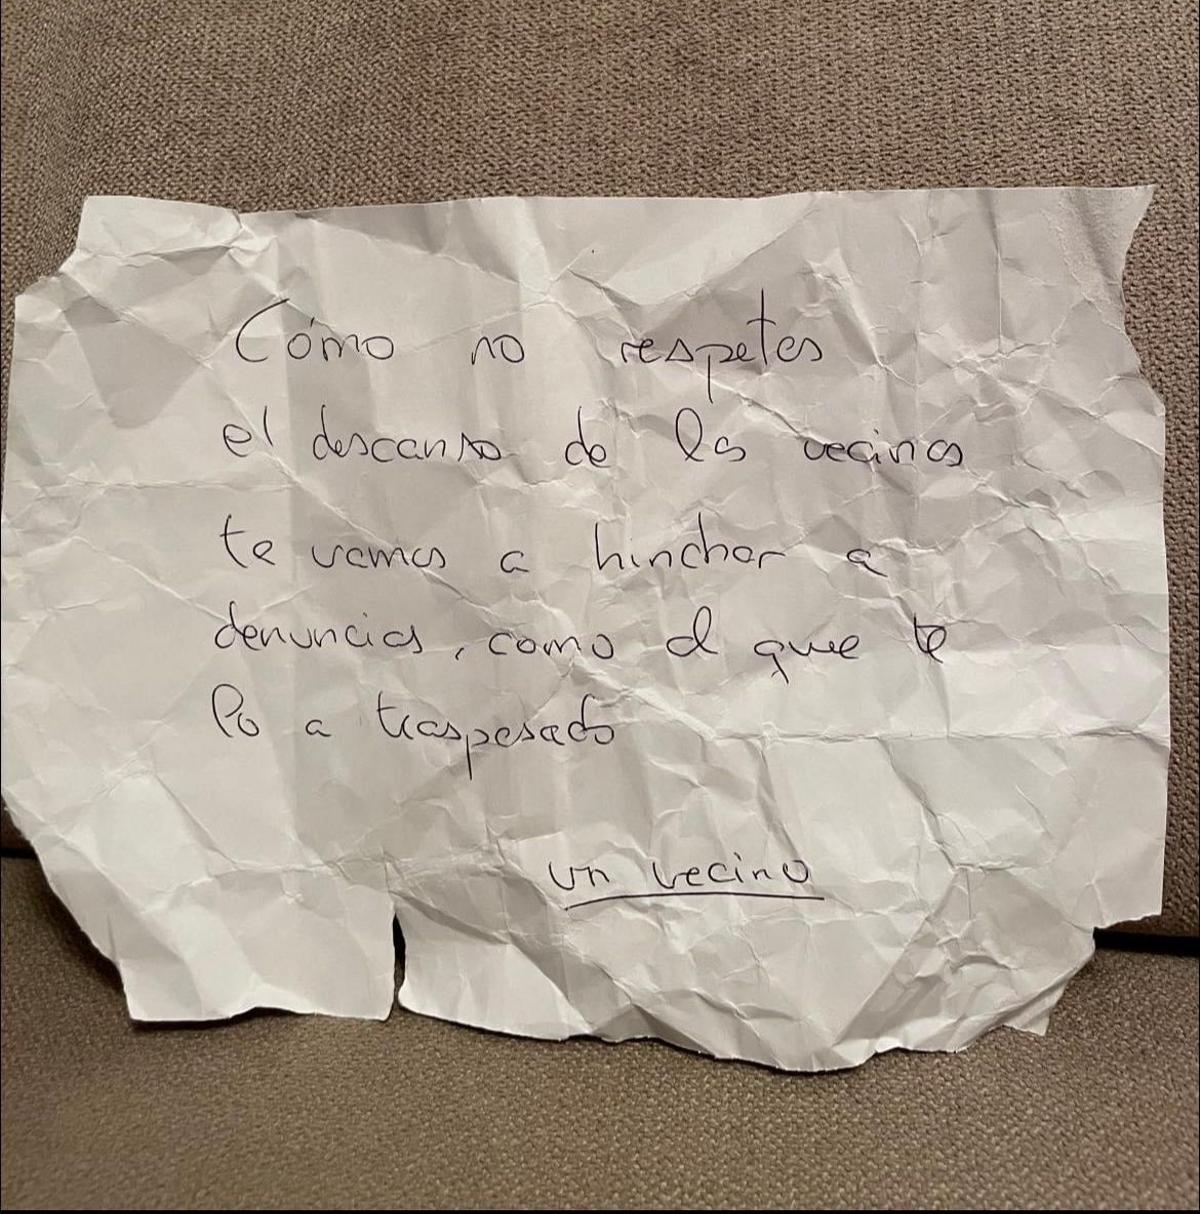 Cómo no respetes
el descanso de los vecinos
te vamos a hinchar a
denuncias, como al que te
lo a traspasado
un vecino